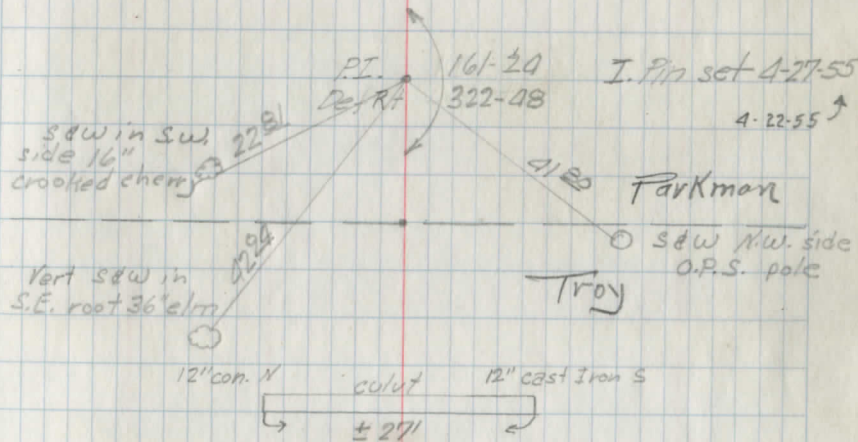 P.I.
Def Rt
161-24
322-48
I. Pin set 4-27-55
4-22-55
s&w in s.w.
side 16"
crooked cherry
2281
4180
Parkman
s&w N.W. side
O.P.S. pole
Troy
4294
Vert s&w in
S.E. root 36" elm
12" con. N
culvt
12" cast Iron S
± 27'